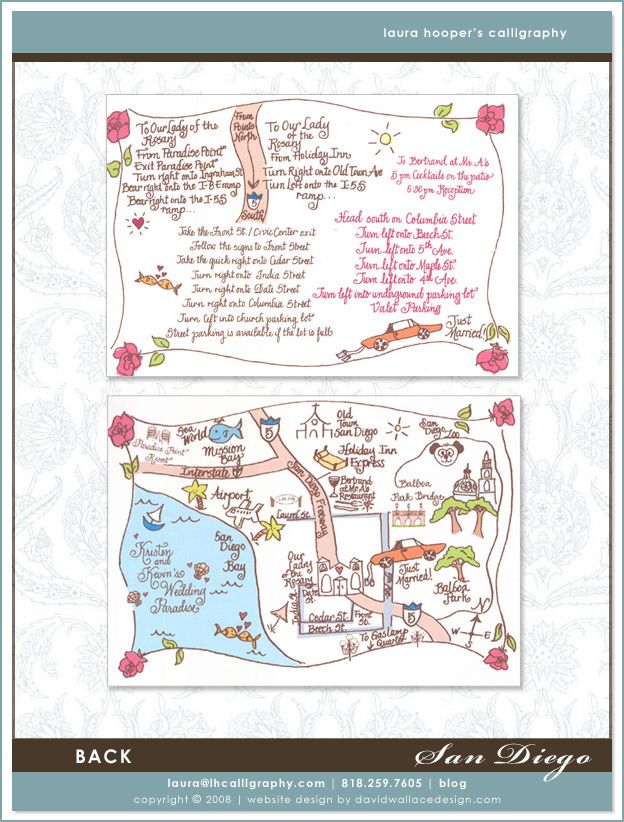 laura hooper's calligraphy
From
Points
North
5
South!
To Our Lady of the
Rosary
From Paradise Point
Exit Paradise Point
Turn right onto Ingraham St
Bear right onto the I-8 E ramp
Bear right onto the I-5 S
ramp...
To Our Lady
of the
Rosary
From Holiday Inn
Turn Right onto Old Town Ave
Turn Left onto the I-5 S
ramp...
Take the Front St. / Civic Center exit
Follow the signs to Front Street
Take the quick right onto Cedar Street
Turn right onto India Street
Turn right onto Date Street
Turn right onto Columbia Street
Turn Left into church parking lot
Street parking is available if the lot is full
To Bertrand at Mr. A's
5 pm Cocktails on the patio
6:30 pm Reception
Head south on Columbia Street
Turn left onto Beech St.
Turn left onto 5th Ave.
Turn left onto Maple St.
Turn left onto 4th Ave.
Turn left into underground parking lot
Valet Parking
Just
Married!
Paradise Point
Resort
Sea
World
Mission
Bay
Interstate 8
5
San Diego Freeway
Old
Town
San Diego
Holiday Inn
Express
Bertrand
at Mr. A's
Restaurant
San
Diego
Zoo
Balboa
Park Bridge
Airport
Laurel St.
San
Diego
Bay
Kristin
and
Kevin's
Wedding
Paradise
Our
Lady
of the
Rosary
India St.
Date
St.
Cedar St.
Beech St.
Front
St.
Just
Married!
Balboa
Park
5
To Gaslamp
Quarter
N
W
E
S
BACK
San Diego
laura@lhcalligraphy.com | 818.259.7605 | blog
copyright © 2008 | website design by davidwallacedesign.com